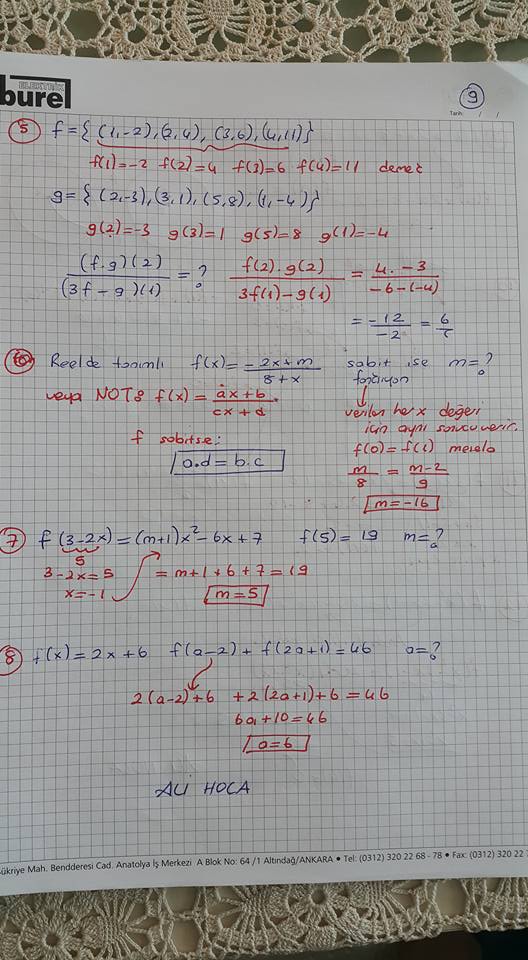 ELEKTRİK
burel
9
Tarih: / /
5 f={(1,-2),(2,4),(3,6),(4,11)}
f(1)=-2 f(2)=4 f(3)=6 f(4)=11 demek
g={(2,-3),(3,1),(5,8),(1,-4)}
g(2)=-3 g(3)=1 g(5)=8 g(1)=-4
(f.g)(2) / (3f-g)(1) = ? f(2).g(2) / 3f(1)-g(1) = 4.-3 / -6-(-4)
= -12 / -2 = 6
6 Reelde tanımlı f(x)= -2x+m / 8+x sabit ise m=?
fonksiyon
veya NOT: f(x)= ax+b / cx+d
verilen her x değeri
için aynı sonucu verir.
f sabitse:
f(0)=f(1) mesela
a.d=b.c
m/8 = m-2/9
m=-16
7 f(3-2x)=(m+1)x²-6x+7 f(5)=19 m=?
5
3-2x=5 =m+1+6+7=19
x=-1 m=5
8 f(x)=2x+6 f(a-2)+f(2a+1)=46 a=?
2(a-2)+6 +2(2a+1)+6=46
6a+10=46
a=6
ALİ HOCA
ükriye Mah. Bendderesi Cad. Anatolya İş Merkezi A Blok No: 64 /1 Altındağ/ANKARA • Tel: (0312) 320 22 68 - 78 • Fax: (0312) 320 22 7